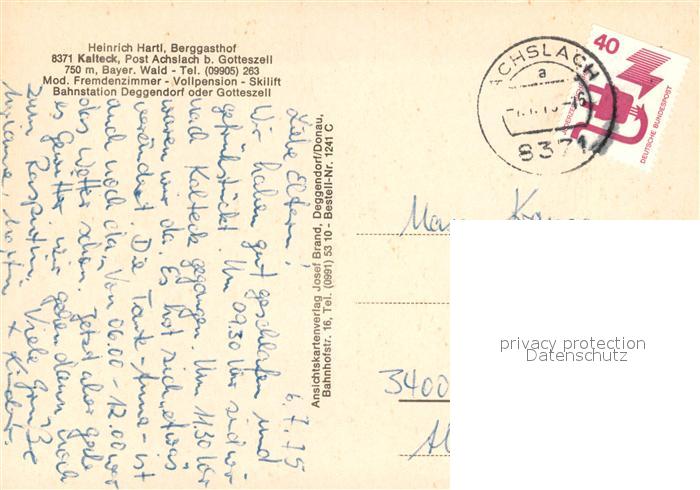 Heinrich Hartl, Berggasthof
8371 Kalteck, Post Achslach b. Gotteszell
750 m, Bayer. Wald - Tel. (09905) 263
Mod. Fremdenzimmer - Vollpension - Skilift
Bahnstation Deggendorf oder Gotteszell
6.7.75
Liebe Eltern!
Wir haben gut geschlafen und
gefrühstückt. Um 09.30 Uhr sind wir
nach Kalteck gegangen. Um 11.30 Uhr
waren wir da. Es hat sich etwas
verändert. Die Tante-Anna-ist
auch noch da. Von 06.00 - 12.00 war
das Wetter schön. Jetzt aber
wir gehen dann noch
zum Viele Grüße
+ Kinder.
Ansichtskartenverlag Josef Brand, Deggendorf/Donau,
Bahnhofstr. 16, Tel. (0991) 53 10 - Bestell-Nr. 1241 C
ACHSLACH
a
8371
40
DEUTSCHE BUNDESPOST
3400
privacy protection
Datenschutz